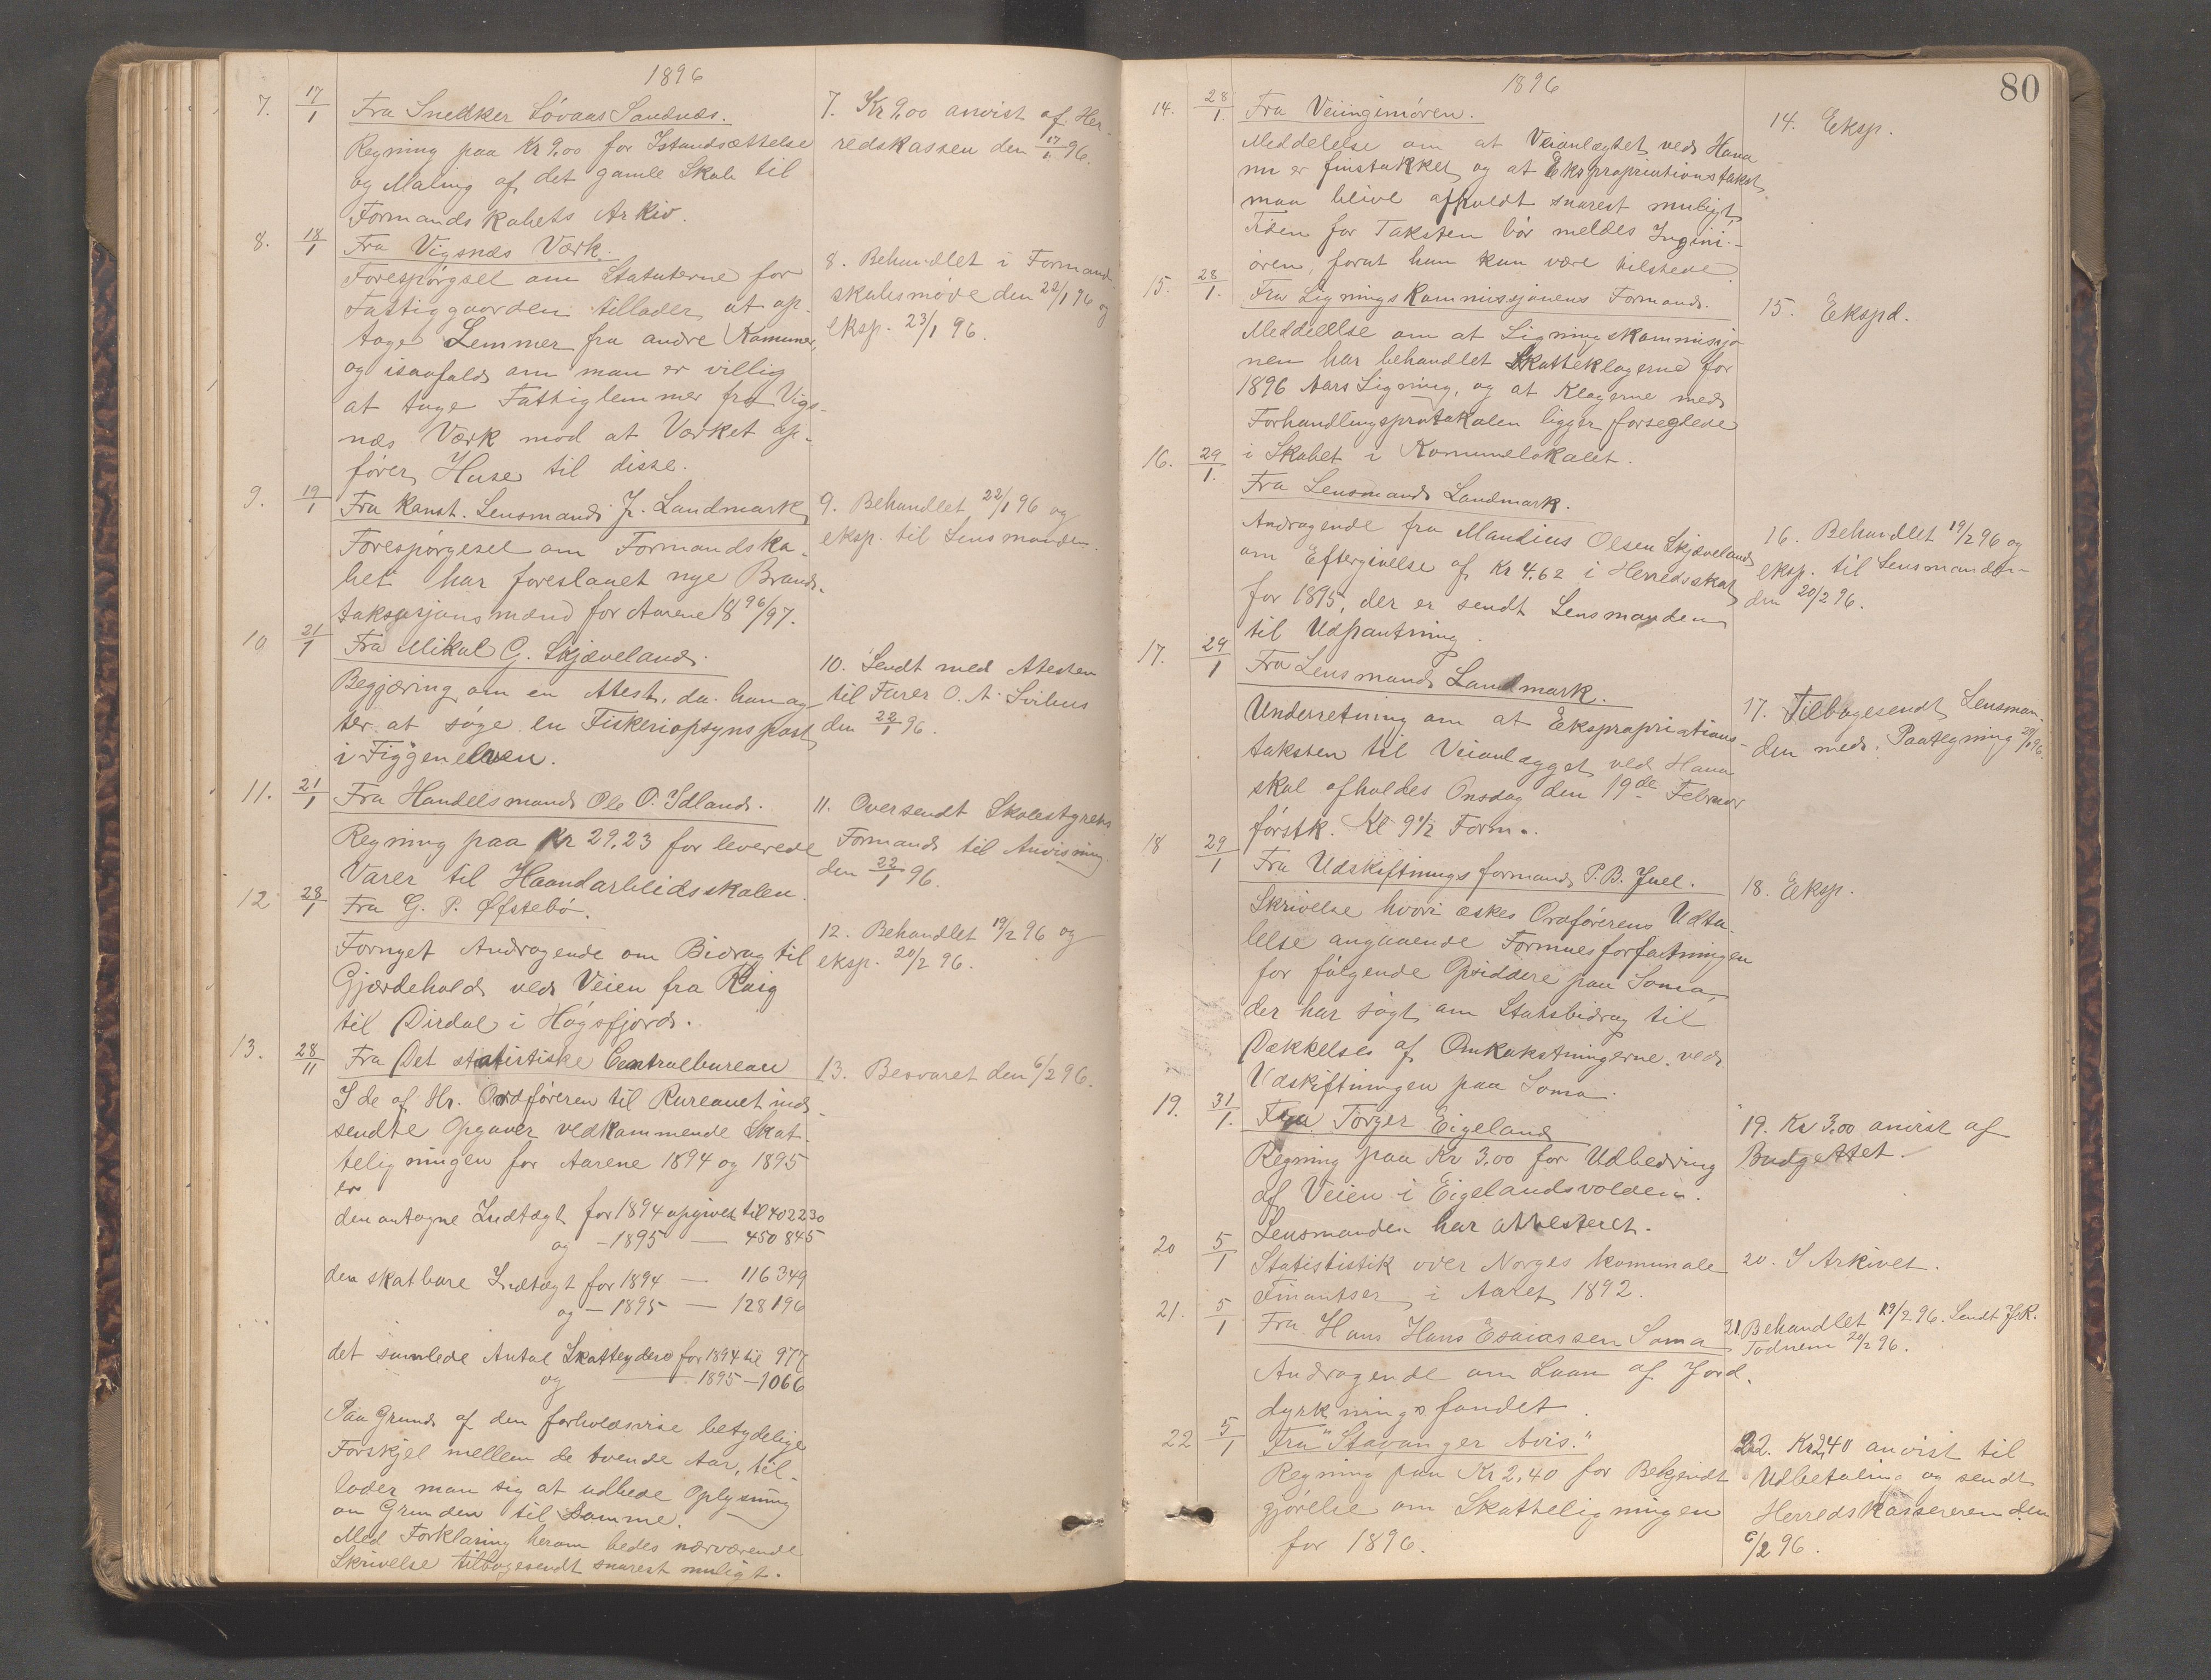 1896
7. 17/1 Fra Snedker Lövaas Sandnæs.
Regning paa Kr 9,00 for Istandsættelse
og Maling af det gamle Skab til
Formandskabets Arkiv.
7. Kr 9,00 anvist af Her-
redskassen den 17/1 96.
8. 18/1 Fra Vigsnæs Værk.
Forespörgsel om Statuterne for
Fattiggaarden tillader at op-
tage Lemmer fra andre Komuner,
og isaafald om man er villig
at tage Fattiglemmer fra Vigs-
næs Værk mod at Værket op-
förer Huse til disse.
8. Behandlet i Formand-
skabsmöde den 22/1 96 og
eksp. 23/1 96.
9. 19/1 Fra Konst. Lensmand J. Landmark
Forespörgsel om Formandska-
bet har foreslaaet nye Brand-
taksasjonsmænd for Aarene 18 96/97.
9. Behandlet 22/1 96 og
eksp. til Lensmanden.
10 21/1 Fra Mikal G. Skjæveland.
Begjæring om en Attest, da han ag-
ter at söge en Fiskeriopsynspost
i Figgenelven.
10. Sendt med Attesten
til Furer O. A. Svihus
den 22/1 96.
11. 21/1 Fra Handelsmand Ole O. Idland.
Regning paa Kr 29,23 for leverede
Varer til Haandarbeidsskolen.
11. Oversendt Skolestyrets
Formand til Anvisning
den 22/1 96.
12 28/1 Fra G. P. Øfstebö.
Fornyet Andragende om Bidrag til
Gjærdehold ved Veien fra Røig
til Dirdal i Högsfjord.
12. Behandlet 19/2 96 og
eksp. 20/2 96.
13. 28/11 Fra Det statistiske Centralbureau
I de af Hr. Ordföreren til Bureauet ind-
sendte Opgaver vedkommende Skat-
teligningen for Aarene 1894 og 1895
er
den antagne Indtægt for 1894 opgivet til 402230
og - 1895 — 450845
den skatbare Indtægt for 1894 — 116349
og - 1895 — 128196
det samlede Antal Skatteydere for 1894 til 977
og 1895 - 1066
Paa Grund af den forholdsvise betydelige
Forskjel mellem de tvende Aar, til-
lader man sig at udbede Oplysning
om Grunden til Samme.
Med Forklaring herom bedes nærværende
Skrivelse tilbagesendt snarest muligt.
13. Besvaret den 6/2 96.
80
1896
14. 28/1. Fra Veiingeniören.
Meddelelse om at Veianlægtet ved Hana
nu er finstukket og at Ekspropriationstakst
maa blive afholdt snarest muligt.
Tiden for Taksten bör meldes Ingeni-
ören, forat han kan være tilstede
14. Eksp.
15. 28/1. Fra Ligningskommissjonens Formand.
Meddeelse om at Ligningskommissjo
nen har behandlet Skatteklagerne for
1896 Aars Ligning, og at Klagerne med
Forhandlingsprotokolen ligger forseglede
i Skabet i Komunelokalet.
15. Ekspd.
16. 29/1. Fra Lensmand Landmark.
Andragende fra Mandius Olsen Skjæveland
om Eftergivelse af Kr 4,62 i Herredsskat
for 1895, der er sendt Lensmanden
til Udpantning.
16. Behandlet 19/2 96 og
eksp. til Lensmanden
den 20/2 96.
17. 29/1 Fra Lensmand Landmark.
Underretning om at Ekspropriations-
taksten til Veianlægget ved Hana
skal afholdes Onsdag den 19de Februar
förstk. Kl 9 1/2 Form.
17. Tilbagesendt Lensman-
den med Paategning 29/1 96.
18 29/1 Fra Udskiftningsformand P. B. Juel.
Skrivelse hvori æskes Ordförerens Udta-
lelse angaaende Formuesforfatningen
for fölgende Opsiddere paa Soma,
der har sögt om Statsbidrag til
Dækkelse af Omkostningerne ved
Udskiftningen paa Soma.
18. Eksp.
19. 31/1. Fra Torger Eigeland
Regning paa Kr 3,00 for Udbedring
af Veien i Eigelandsvolden.
Lensmanden har attesteret.
19. Kr 3,00 anvist af
Budgettet.
20 5/1 Statististik over Norges komunale
Finantser i Aaret 1892.
20. I Arkivet.
21. 5/1 Fra Hans Hans Esaiassen Soma
Andragende om Laan af Jord-
dyrkningsfondet.
21 Behandlet 19/2 96. Sendt J. R.
Todnem 20/2 96.
22 5/1 Fra "Stavanger Avis."
Regning paa Kr 2,40 for Bekjendt
gjörelse om Skatteligningen
for 1896.
22. Kr 2,40 anvist til
Udbetaling og sendt
Herredskassereren den
6/2 96.